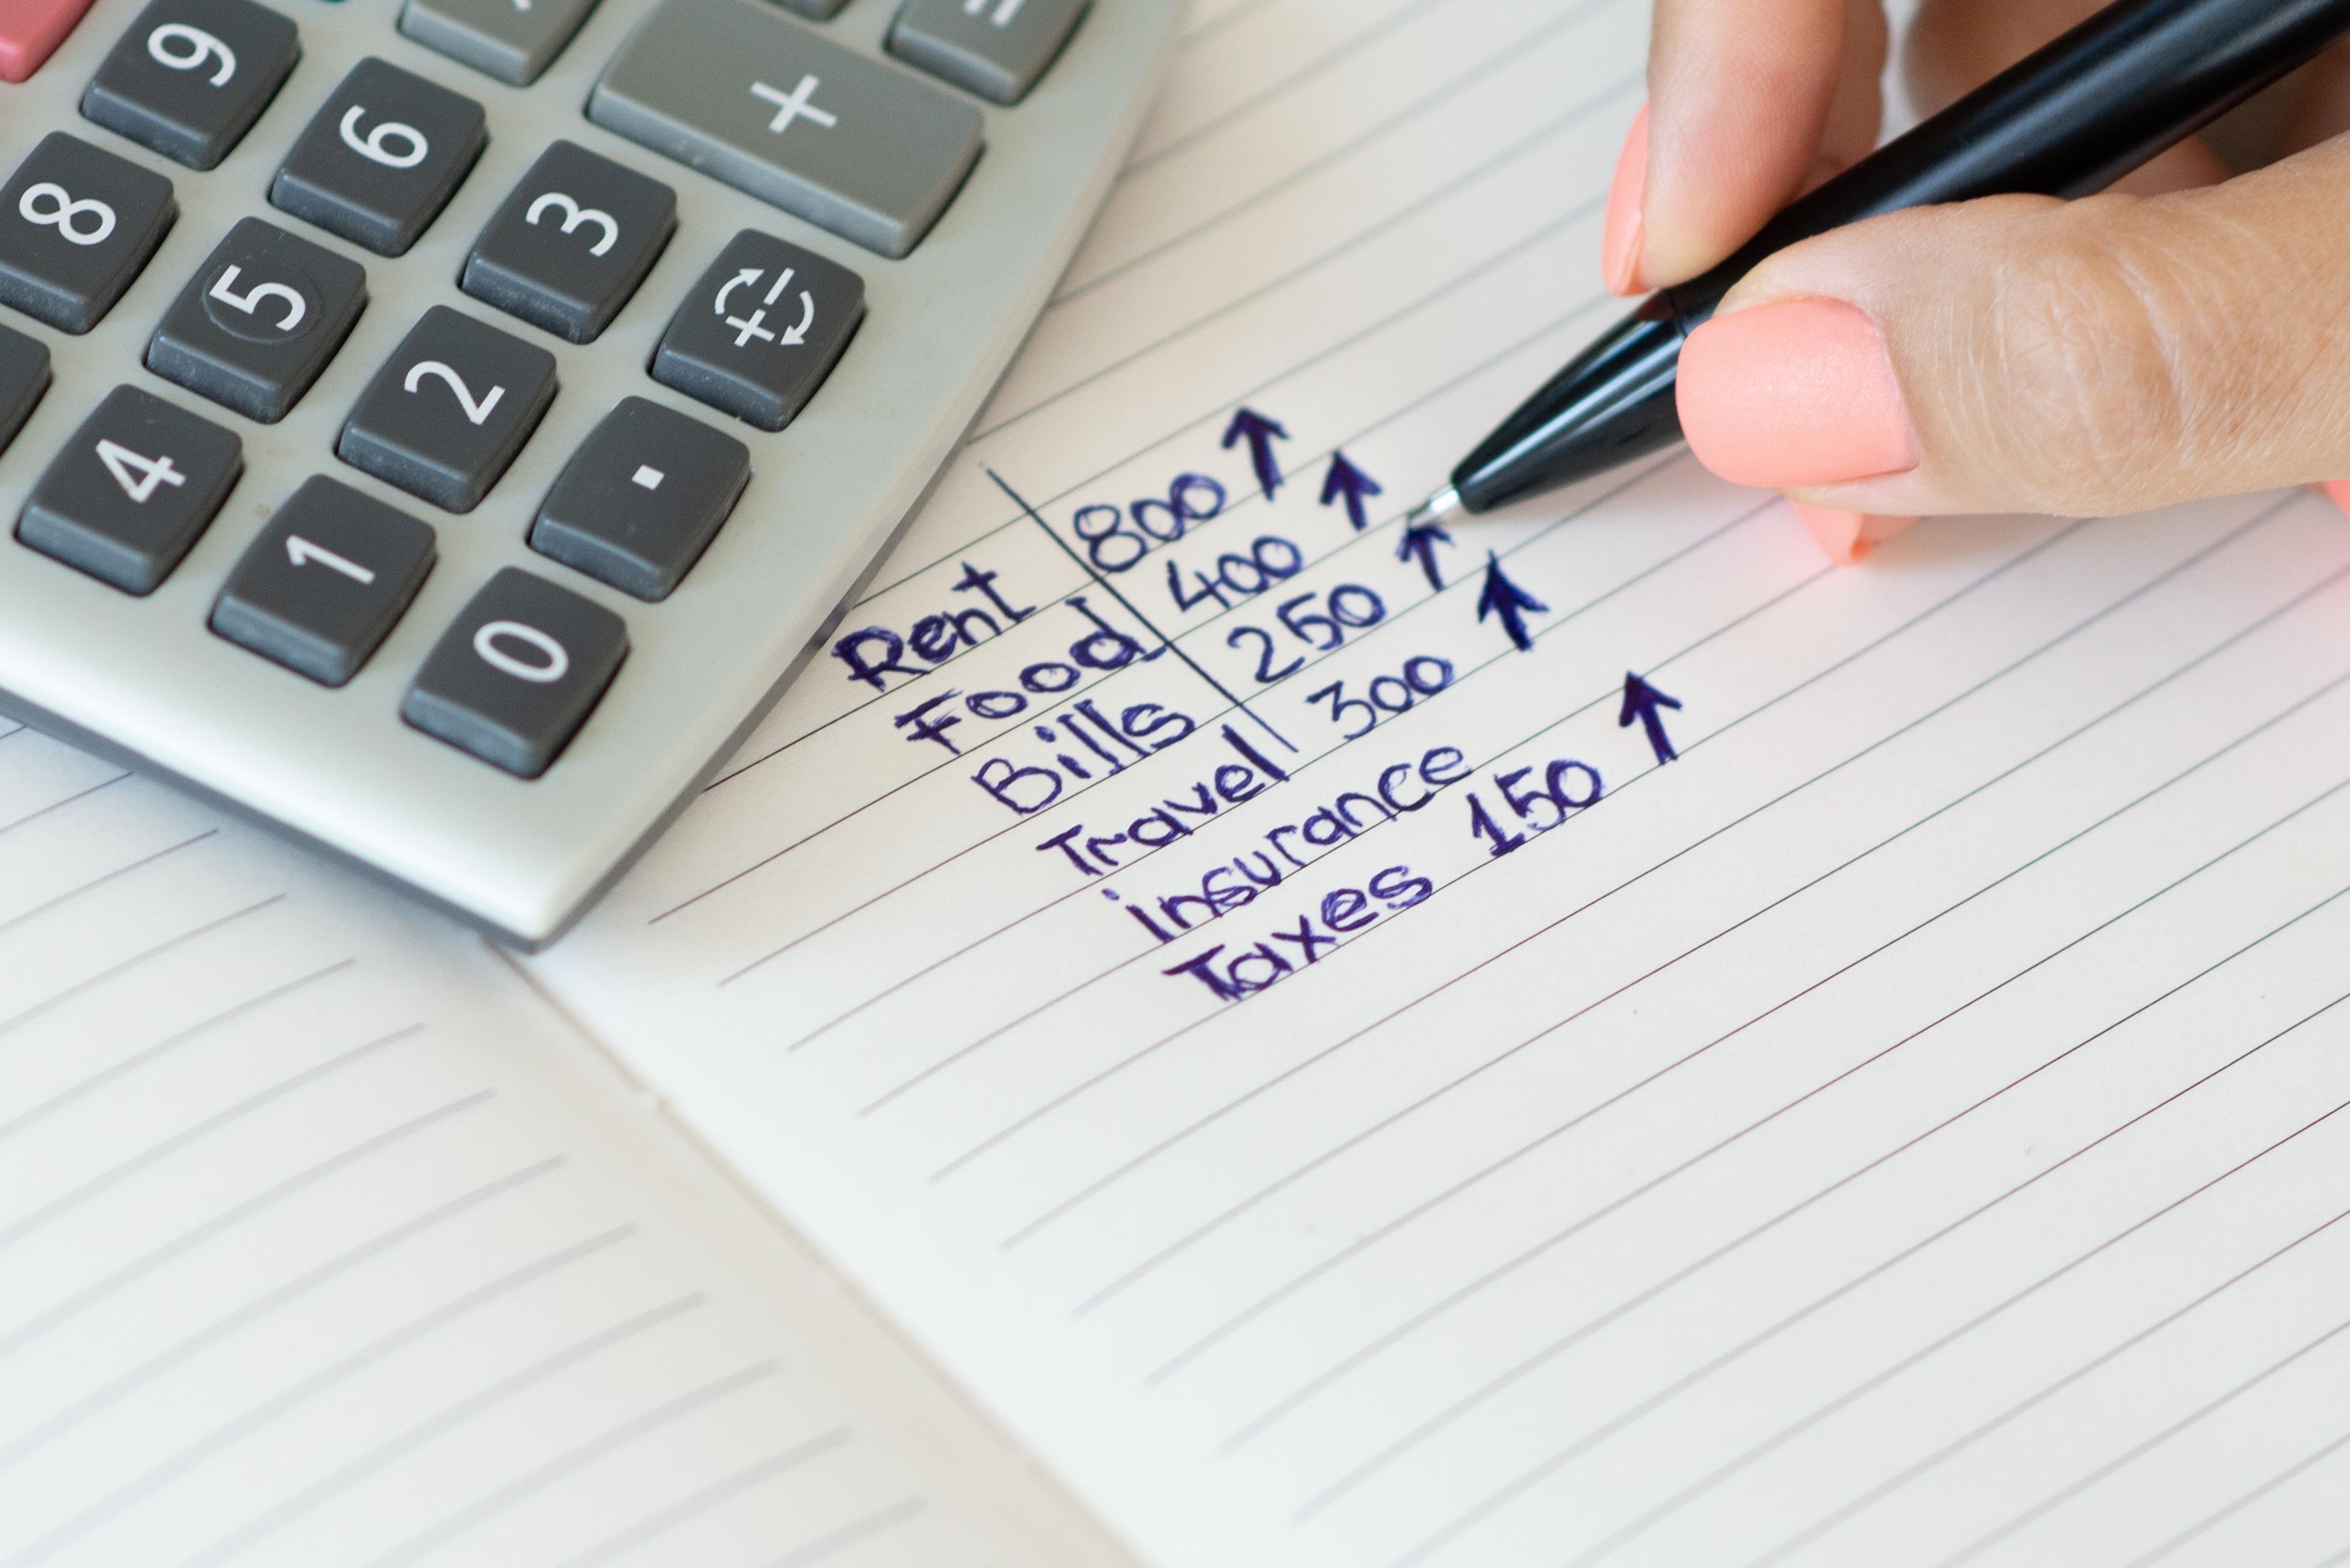 9
6
3
+
=
8
5
2
4
1
.
0
+−
Rent 800 ↑
Food 400 ↑
Bills 250 ↑
Travel 300 ↑
insurance
Taxes 150 ↑